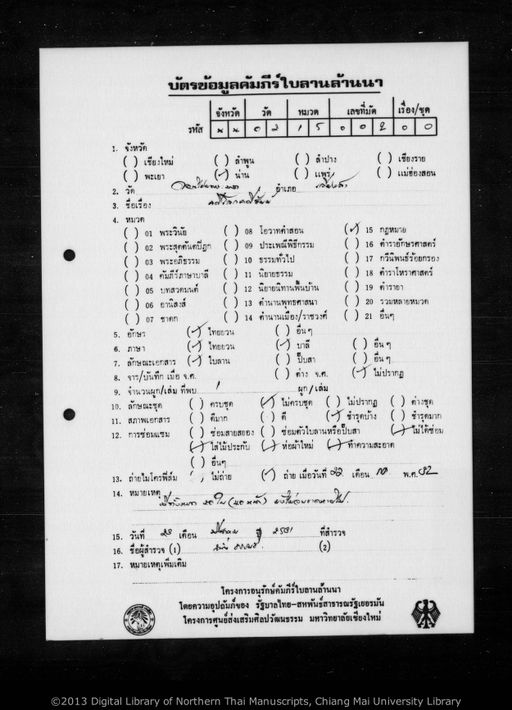 บัตรข้อมูลคัมภีร์ใบลานล้านนา
จังหวัด วัด หมวด เลขที่มัด เรื่อง/ชุด
รหัส น น 0 2 1 5 0 0 2 0 0
1. จังหวัด
( ) เชียงใหม่ ( ) ลำพูน ( ) ลำปาง ( ) เชียงราย
( ) พะเยา (✓) น่าน ( ) แพร่ ( ) แม่ฮ่องสอน
2. วัด อำเภอ
3. ชื่อเรื่อง
4. หมวด
( ) 01 พระวินัย ( ) 08 โอวาทคำสอน (✓) 15 กฎหมาย
( ) 02 พระสุตตันตปิฎก ( ) 09 ประเพณีพิธีกรรม ( ) 16 ตำรายักษรศาสตร์
( ) 03 พระอภิธรรม ( ) 10 ธรรมทั่วไป ( ) 17 กวีนิพนธ์ร้อยกรอง
( ) 04 คัมภีร์ภาษาบาลี ( ) 11 นิยายธรรม ( ) 18 ตำราโหราศาสตร์
( ) 05 บทสวดมนต์ ( ) 12 นิยายนิทานพื้นบ้าน ( ) 19 ตำรายา
( ) 06 อานิสงส์ ( ) 13 ตำนานพุทธศาสนา ( ) 20 รวมหลายหมวด
( ) 07 ชาดก ( ) 14 ตำนานเมือง/ราชวงศ์ ( ) 21 อื่นๆ
5. อักษร (✓) ไทยยวน ( ) อื่นๆ
6. ภาษา (✓) ไทยยวน (✓) บาลี ( ) อื่นๆ
7. ลักษณะเอกสาร (✓) ใบลาน ( ) ปั๊บสา ( ) อื่นๆ
8. จาร/บันทึก เมื่อ จ.ศ. ( ) ต่าง จ.ศ. (✓) ไม่ปรากฏ
9. จำนวนผูก/เล่ม ที่พบ 1 ผูก/เล่ม
10. ลักษณะชุด ( ) ครบชุด (✓) ไม่ครบชุด ( ) ไม่ปรากฏ ( ) ต่างชุด
11. สภาพเอกสาร ( ) ดีมาก ( ) ดี (✓) ชำรุดบ้าง ( ) ชำรุดมาก
12. การซ่อมแซม ( ) ซ่อมสายสยอง ( ) ซ่อมตัวใบลานหรือปั๊บสา (✓) ไม่ได้ซ่อม
(✓) ใส่ไม้ประกับ (✓) ห่อผ้าใหม่ (✓) ทำความสะอาด
( ) อื่นๆ
13. ถ่ายไมโครฟิล์ม ( ) ไม่ถ่าย (✓) ถ่าย เมื่อวันที่ 22 เดือน พ.ศ. 32
14. หมายเหตุ 20 ใบ (40 หน้า)
15. วันที่ 23 เดือน ปี 2531 ที่สำรวจ
16. ชื่อผู้สำรวจ (1) (2)
17. หมายเหตุเพิ่มเติม
โครงการอนุรักษ์คัมภีร์ใบลานล้านนา
โดยความอุปถัมภ์ของ รัฐบาลไทย-สหพันธ์สาธารณรัฐเยอรมัน
โครงการศูนย์ส่งเสริมศิลปวัฒนธรรม มหาวิทยาลัยเชียงใหม่
©2013 Digital Library of Northern Thai Manuscripts, Chiang Mai University Library